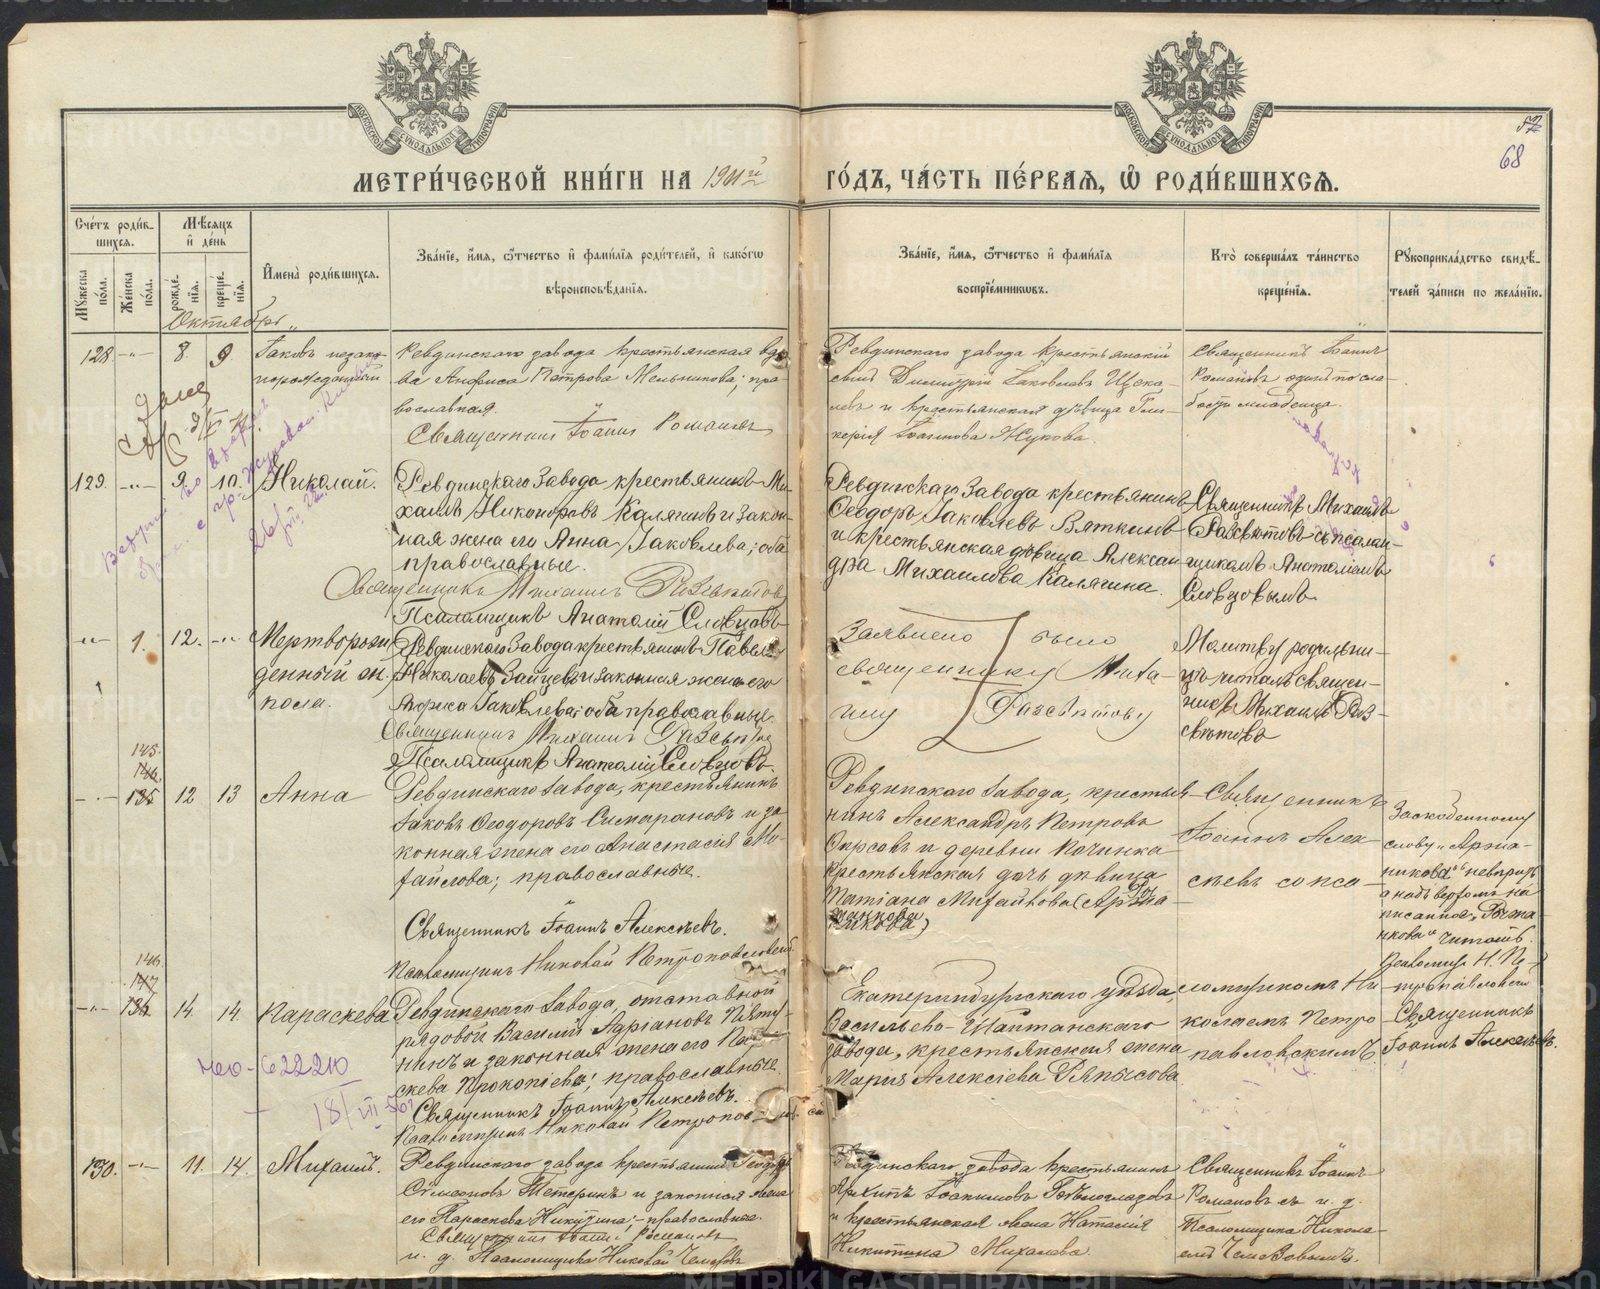 МЕТРИ́ЧЕСКОЙ КНИ́ГИ НА 1901 й ГО́ДЪ, ЧА́СТЬ ПЕ́РВАѦ, Ѡ҆ РОДИ́ВШИХСѦ.
68
Сче́тъ роди́в-
шихся.
Мѣ́сяцъ
и҆ де́нь
Мꙋ́жеска
по́ла.
Же́нска
по́ла.
рожде́-
нїя.
креще́-
нїя.
И҆мена̀ роди́вшихся.
Зва́нїе, и҆́мя, ѻ҆́тчество и҆ фами́лїя роди́телей, и҆ како́гѡ
вѣроисповѣ́данїя.
Зва́нїе, и҆́мя, ѻ҆́тчество и҆ фами́лїя
воспрїе́мникѡвъ.
Кто̀ соверша́лъ та́инство
креще́нїя.
Рꙋкоприкла́дство свидѣ́-
телей за́писи по жела́нїю.
Октябрь
128 -"- 8 9
Іаковъ незако-
норожденный
Ревдинскаго завода крестьянская вдо-
ва Анфиса Петрова Мельникова; пра-
вославная.
Священникъ Іоаннъ Романовъ
Ревдинскаго завода крестьянскій
сынъ Димитрій Іаковлевъ Щека-
левъ и крестьянская дѣвица Гли-
керія Іоакимова Жукова.
Священникъ Іоаннъ
Романовъ одинъ по сла-
бости младенца.
129. -"- 9. 10.
Николай.
Ревдинскаго Завода крестьянинъ Ми-
хаилъ Никоноровъ Калягинъ и закон-
ная жена его Анна Іаковлева; оба
православные.
Священникъ Михаилъ Разсвѣтовъ
Псаломщикъ Анатолій Словцовъ
Ревдинскаго Завода крестьянинъ
Ѳеодоръ Іаковлевъ Вяткинъ
и крестьянская дѣвица Алексан-
дра Михаилова Калягина.
Священникъ Михаилъ
Разсвѣтовъ съ псалом-
щикомъ Анатоліемъ
Словцовымъ
-"- 1. 12. -"-
Мертворож-
денный ж.
пола.
Ревдинскаго Завода крестьянинъ Павелъ
Николаевъ Зайцевъ и законная жена его
Іаковлева; оба православные.
Священникъ Михаилъ Разсвѣтовъ
Псаломщикъ Анатолій Словцовъ.
Заявлено было
священнику Миха-
илу Разсвѣтову
Молитву родильни-
цѣ читалъ священ-
никъ Михаилъ Раз-
свѣтовъ
145.
146.
-"- 135 12 13
Анна
Ревдинскаго завода, крестьянинъ
Іаковъ Ѳеодоровъ и за-
конная жена его Анастасія Ми-
хайлова; православные.
Священникъ Іоаннъ Алексѣевъ.
Псаломщикъ Николай Петропавловскій
Ревдинскаго завода, крестья-
нинъ Александръ Петровъ
и деревни Починка
крестьянская дочь дѣвица
Татіана Михайлова (Аржа-
никова)
Священникъ
Іоаннъ Алек-
сѣевъ со пса-
ломщикомъ Ни-
колаемъ Петро-
павловскимъ
слову „Аржа-
никова“ невѣрить
а надъ верхомъ на-
писанное
читать.
Псаломщ. Н. Пе-
тропавловскій
Священникъ
Іоаннъ Алексѣевъ.
146
147
-"- 136 14. 14
Параскева
Ревдинскаго завода, отставной
рядовой Василій Адріановъ
и законная жена его Пара-
скева Прокопіева; православные.
Священникъ Іоаннъ Алексѣевъ.
Псаломщикъ Николай Петропавловскій
Екатеринбургскаго уѣзда,
Васильево-Шайтанскаго
завода, крестьянская жена
Марія Алексіева Рямысова
62220
18/VII
130. -"- 11. 14.
Михаилъ.
Ревдинскаго завода крестьянинъ Ѳеодоръ
Сѵмеоновъ Тетеринъ и законная жена
его Параскева Никитина; православные.
Священникъ Іоаннъ Романовъ
и. д. Псаломщика Николай
Ревдинскаго завода крестьянинъ
Архипъ Іоакимовъ
и крестьянская жена Наталія
Никитина Михалева.
Священникъ Іоаннъ
Романовъ съ и. д.
Псаломщика Никола-
емъ